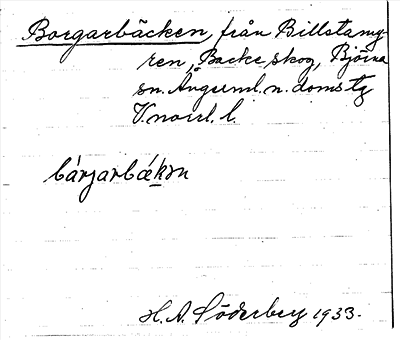 Borgarbäcken, från Billstamy-
ren, Backe skog, Björna
sn. Ångerml. n. doms tg
V.norrl. l.
bárjarbǽkən
H. A. Söderberg 1933.